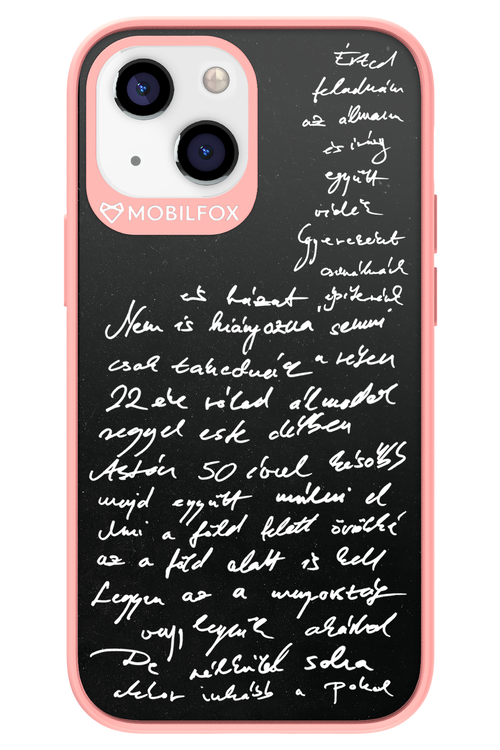 Érted
feladnám
az álmaim
és így
együtt
vidék
Gyerekeket
csinálnánk
és házat építenénk
Nem is hiányozna semmi
csak takednék a
22 éve rólad álmodok
reggel este délben
Aztán 50 évvel később
majd együtt múlni el
Ami a föld felett örökké
az a föld alatt is kell
Legyen az a mennyország
vagy legyünk akárhol
De nélküled soha
akkor inkább a Pokol
MOBILFOX